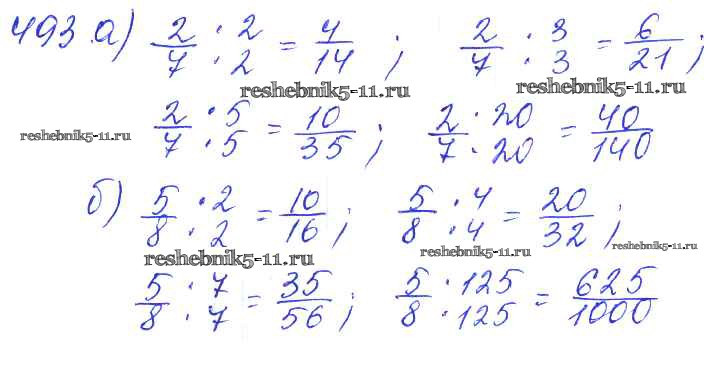 493. а) 2/7 · 2/2 = 4/14 ; 2/7 · 3/3 = 6/21 ;
reshebnik5-11.ru reshebnik5-11.ru
reshebnik5-11.ru 2/7 · 5/5 = 10/35 ; 2/7 · 20/20 = 40/140
б) 5/8 · 2/2 = 10/16 ; 5/8 · 4/4 = 20/32 ;
reshebnik5-11.ru reshebnik5-11.ru reshebnik5-11.ru
5/8 · 7/7 = 35/56 ; 5/8 · 125/125 = 625/1000